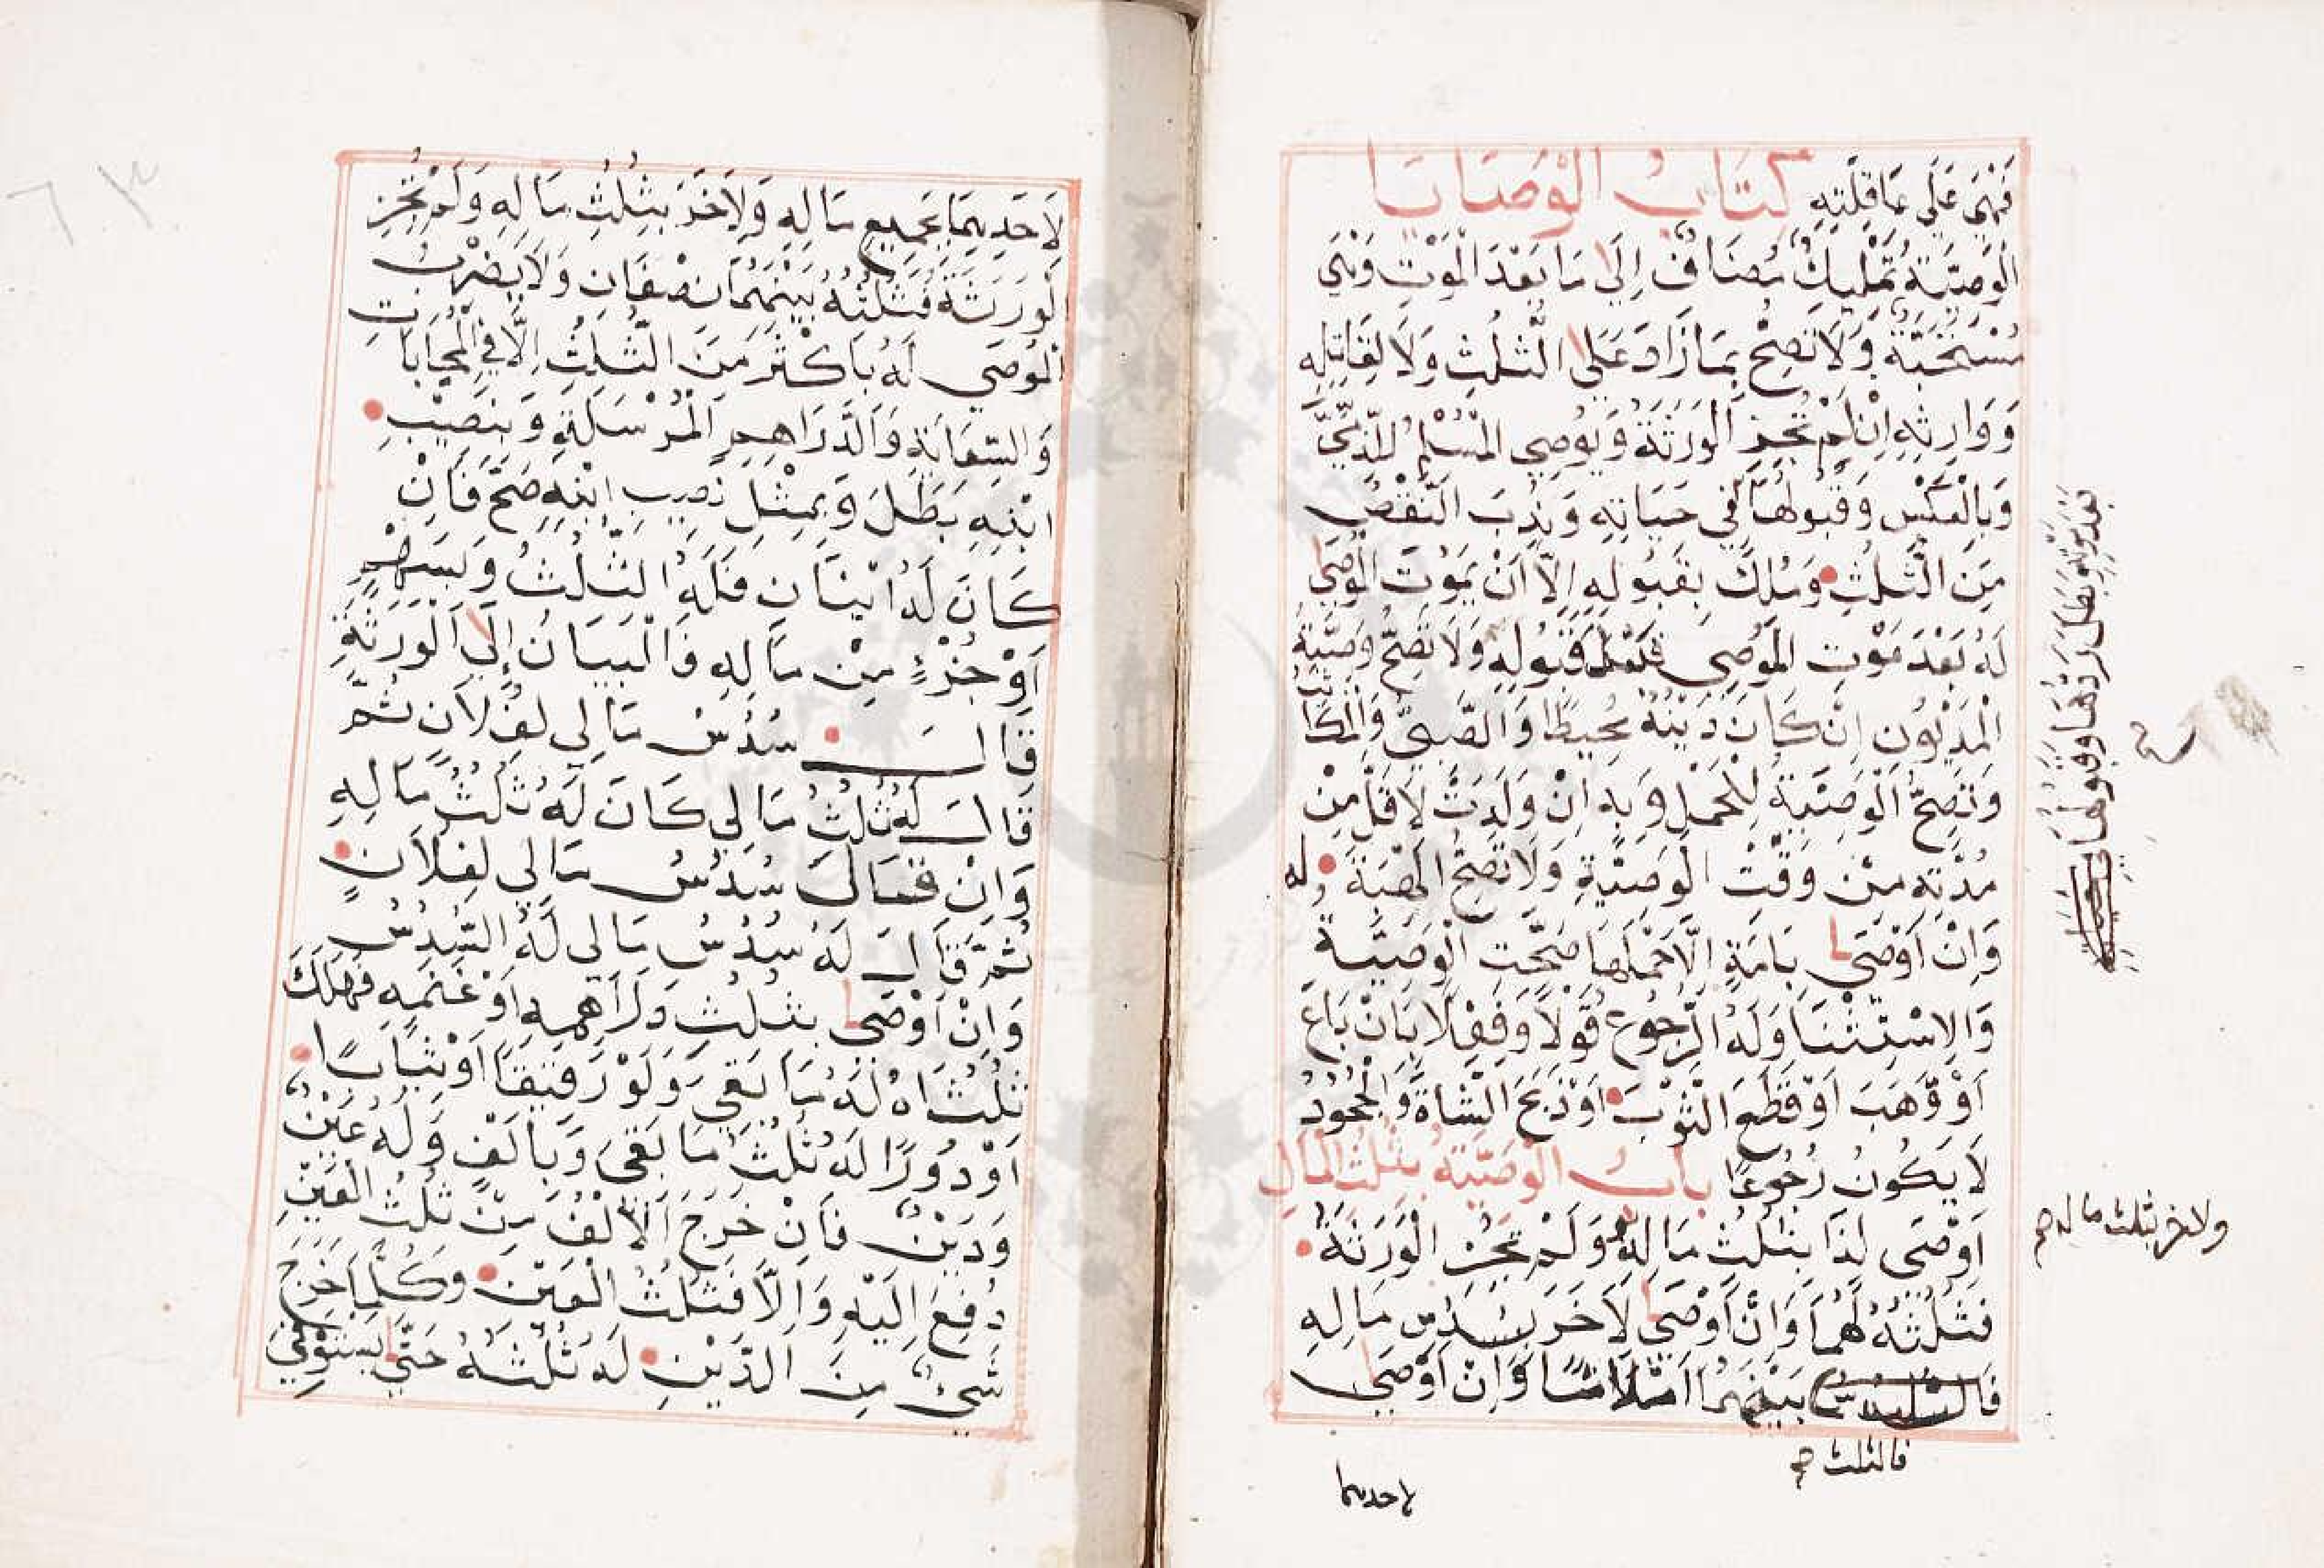 فَهِيَ عَلَى عَاقِلَتِهِ كتاب الوصايا
الْوَصِيَّةُ تَمْلِيكٌ مُضَافٌ إِلَى مَا بَعْدَ الْمَوْتِ وَهِيَ
مُسْتَحَبَّةٌ وَلَا تَصِحُّ بِمَا زَادَ عَلَى الثُّلُثِ وَلَا لِقَاتِلِهِ
وَوَارِثِهِ اِنْ لَمْ تُجِزِ الْوَرَثَةُ وَيُوصِي الْمُسْلِمُ لِلذِّمِّيِّ
وَبِالْعَكْسِ وَقَبُولُهَا فِي حَيَاتِهِ وَنُدِبَ النَّقْصُ
مِنَ الثُّلُثِ وَمُلِكَ بِقَبُولِهِ اِلَّا اَنْ يَمُوتَ الْمُوصَى
لَهُ بَعْدَ مَوْتِ الْمُوصِي قَبُولِهِ وَلَا تَصِحُّ وَصِيَّةُ
الْمَدْيُونِ اِنْ كَانَ دَيْنُهُ مُحِيطًا وَالصَّبِيِّ وَالْمُكَاتَبِ
وَتَصِحُّ الْوَصِيَّةُ لِلْحَمْلِ وَبِهِ اِنْ وَلَدَتْ لِاَقَلَّ مِنْ
مُدَّتِهِ مِنْ وَقْتِ الْوَصِيَّةِ وَلَا تَصِحُّ الْهِبَةُ لَهُ
وَاِنْ اَوْصَى بِاَمَةٍ اِلَّا حَمْلَهَا صَحَّتِ الْوَصِيَّةُ
وَالِاسْتِثْنَا وَلَهُ الرُّجُوعُ قَوْلًا وَفِعْلًا بِاَنْ بَاعَ
اَوْ وَهَبَ اَوْ قَطَعَ الثَّوْبَ اَوْ ذَبَحَ الشَّاةَ وَالْجُحُودُ
لَا يَكُونُ رُجُوعًا باب الوصية بثلث المال
اَوْصَى لِذَا بِثُلُثِ مَالِهِ وَلَمْ تُجِزِ الْوَرَثَةُ
فَثُلُثُهُ لَهُمَا وَاِنْ اَوْصَى لِآخَرَ بِسُدُسِ مَالِهِ
بَيْنَهُمَا اَثْلَاثًا وَاِنْ اَوْصَى
فالثلث صح
لاحدهما
بعد موته وبطل ردها وقبولها في
ولاخر بثلث ماله صح
لِاَحَدِهِمَا بِجَمِيعِ مَالِهِ وَلِآخَرَ بِثُلُثِ مَالِهِ وَلَمْ تُجِزِ
الْوَرَثَةُ فَثُلُثُهُ بَيْنَهُمَا نِصْفَانِ وَلَا يَضْرِبُ
الْمُوصَى لَهُ بِاَكْثَرَ مِنَ الثُّلُثِ اِلَّا فِي الْمُحَابَاتِ
وَالسِّعَايَةِ وَالدَّرَاهِمِ الْمُرْسَلَةِ وَبِنَصِيبِ
ابْنِهِ بَطَلَ وَبِمِثْلِ نَصِيبِ ابْنِهِ صَحَّ فَاِنْ
كَانَ لَهُ اثْنَانِ فَلَهُ الثُّلُثُ وَبِسَهْمٍ
اَوْ جُزْءٍ مِنْ مَالِهِ فَالْبَيَانُ إِلَى الْوَرَثَةِ
قَالَ سُدُسُ مَالِي لِفُلَانٍ ثُمَّ
قَالَ لَهُ ثُلُثُ مَالِي كَانَ لَهُ ثُلُثُ مَالِهِ
وَاِنْ قَالَ سُدُسُ مَالِي لِفُلَانٍ
ثُمَّ قَالَ لَهُ سُدُسُ مَالِي لَهُ السُّدُسُ
وَاِنْ اَوْصَى بِثُلُثِ دَرَاهِمِهِ اَوْ غَنَمِهِ فَهَلَكَ
ثُلُثَاهُ لَهُ مَا بَقِيَ وَلَوْ رَقِيقًا اَوْ ثِيَابًا
اَوْ دُورًا لَهُ ثُلُثُ مَا بَقِيَ وَبِاَلْفٍ وَلَهُ عَيْنٌ
وَدَيْنٌ فَاِنْ خَرَجَ الْاَلْفُ مِنْ ثُلُثِ الْعَيْنِ
دُفِعَ اِلَيْهِ وَاِلَّا فَثُلُثُ الْعَيْنِ وَكُلَّمَا خَرَجَ
شَيْءٌ مِنَ الدَّيْنِ لَهُ ثُلُثُهُ حَتَّى يَسْتَوْفِيَ